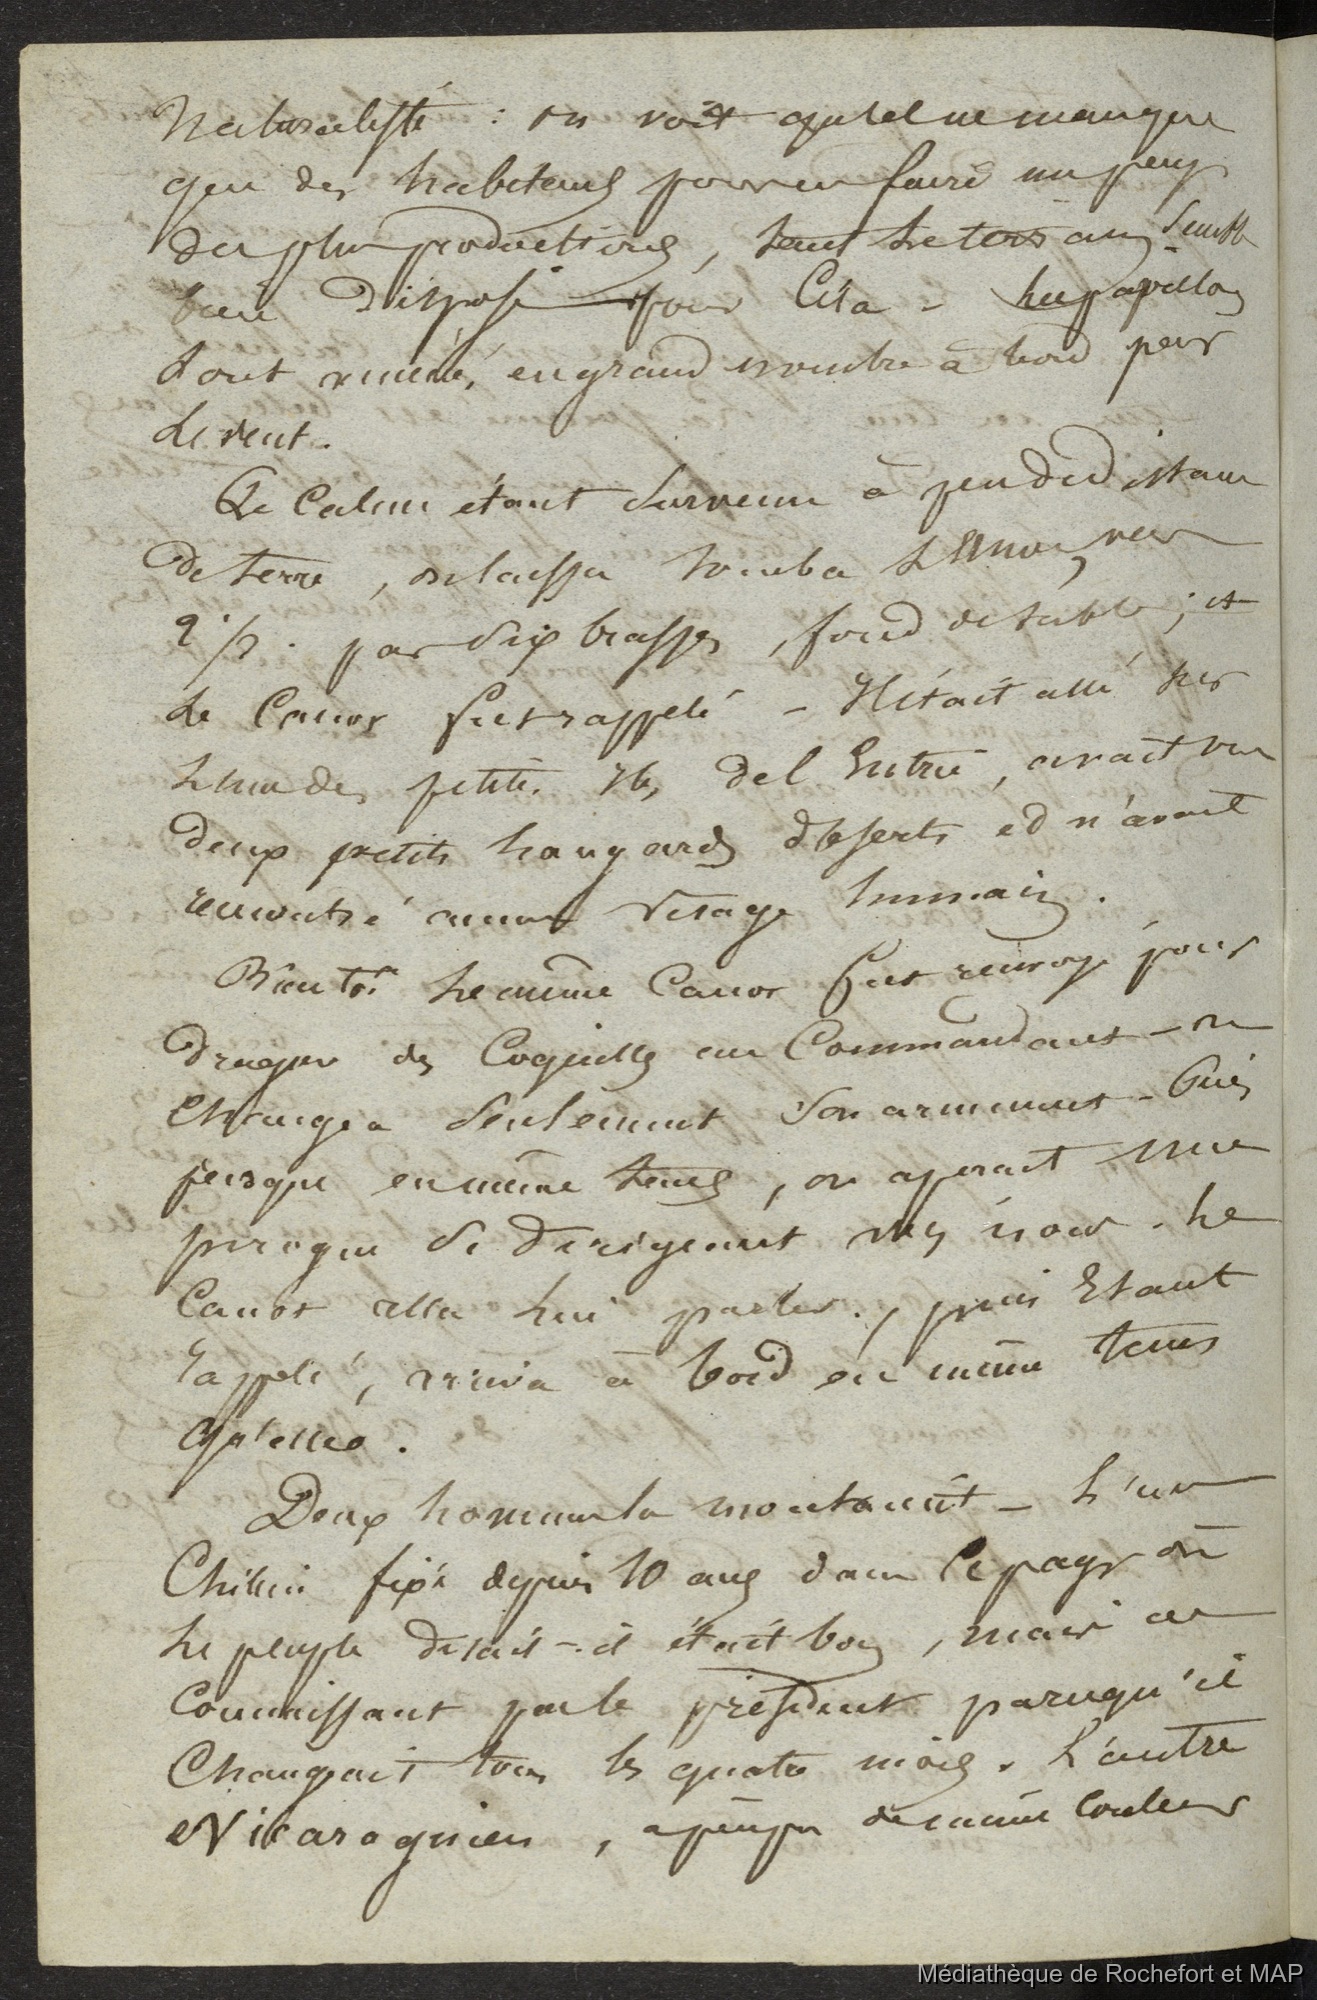 Naturaliste : on voit qu'il ne manque
que des habitans pour en faire un pays
des plus productives, tant le terrain semble
bien disposé pour cela - les papillons
sont venus, en grand nombre à bord par
le vent.
Le calme étant survenu à peu de distance
de terre, on laissa tomba l'ancre vers
2 h. par six brasses, fond de sable ; et
le canot fut rappelé - Il était allé sur
l'une des petites îles de l'entrée, avait vu
deux petits hangards déserts et n'avait
rencontré aucun visage humain.
Bientôt le même canot fut renvoyé pour
draguer des coquilles au Commandant - on
changea seulement son armement - Puis
presque en même tems, on aperçut une
pirogue se dirigeant vers nous. Le
canot alla lui parler, puis étant
rappelé, arriva à bord en même tems
qu'elle.
Deux hommes la montaient - L'un
Chilien fixé depuis 10 ans dans ce pays où
le peuple disait-il était bon, mais ne
connaissant pas le président parcequ'il
changeait tous les quatre mois. L'autre
Nicaraguien, à peu près de même couleur
Médiathèque de Rochefort et MAP